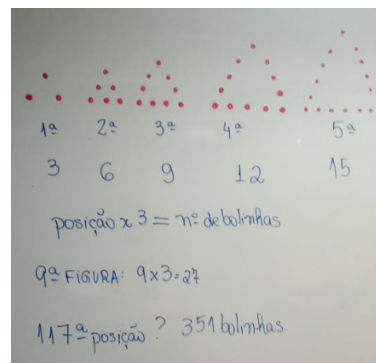 1ª 2ª 3ª 4ª 5ª
3 6 9 12 15
posição x 3 = nº de bolinhas
9ª FIGURA: 9x3=27
117ª posição? 351 bolinhas